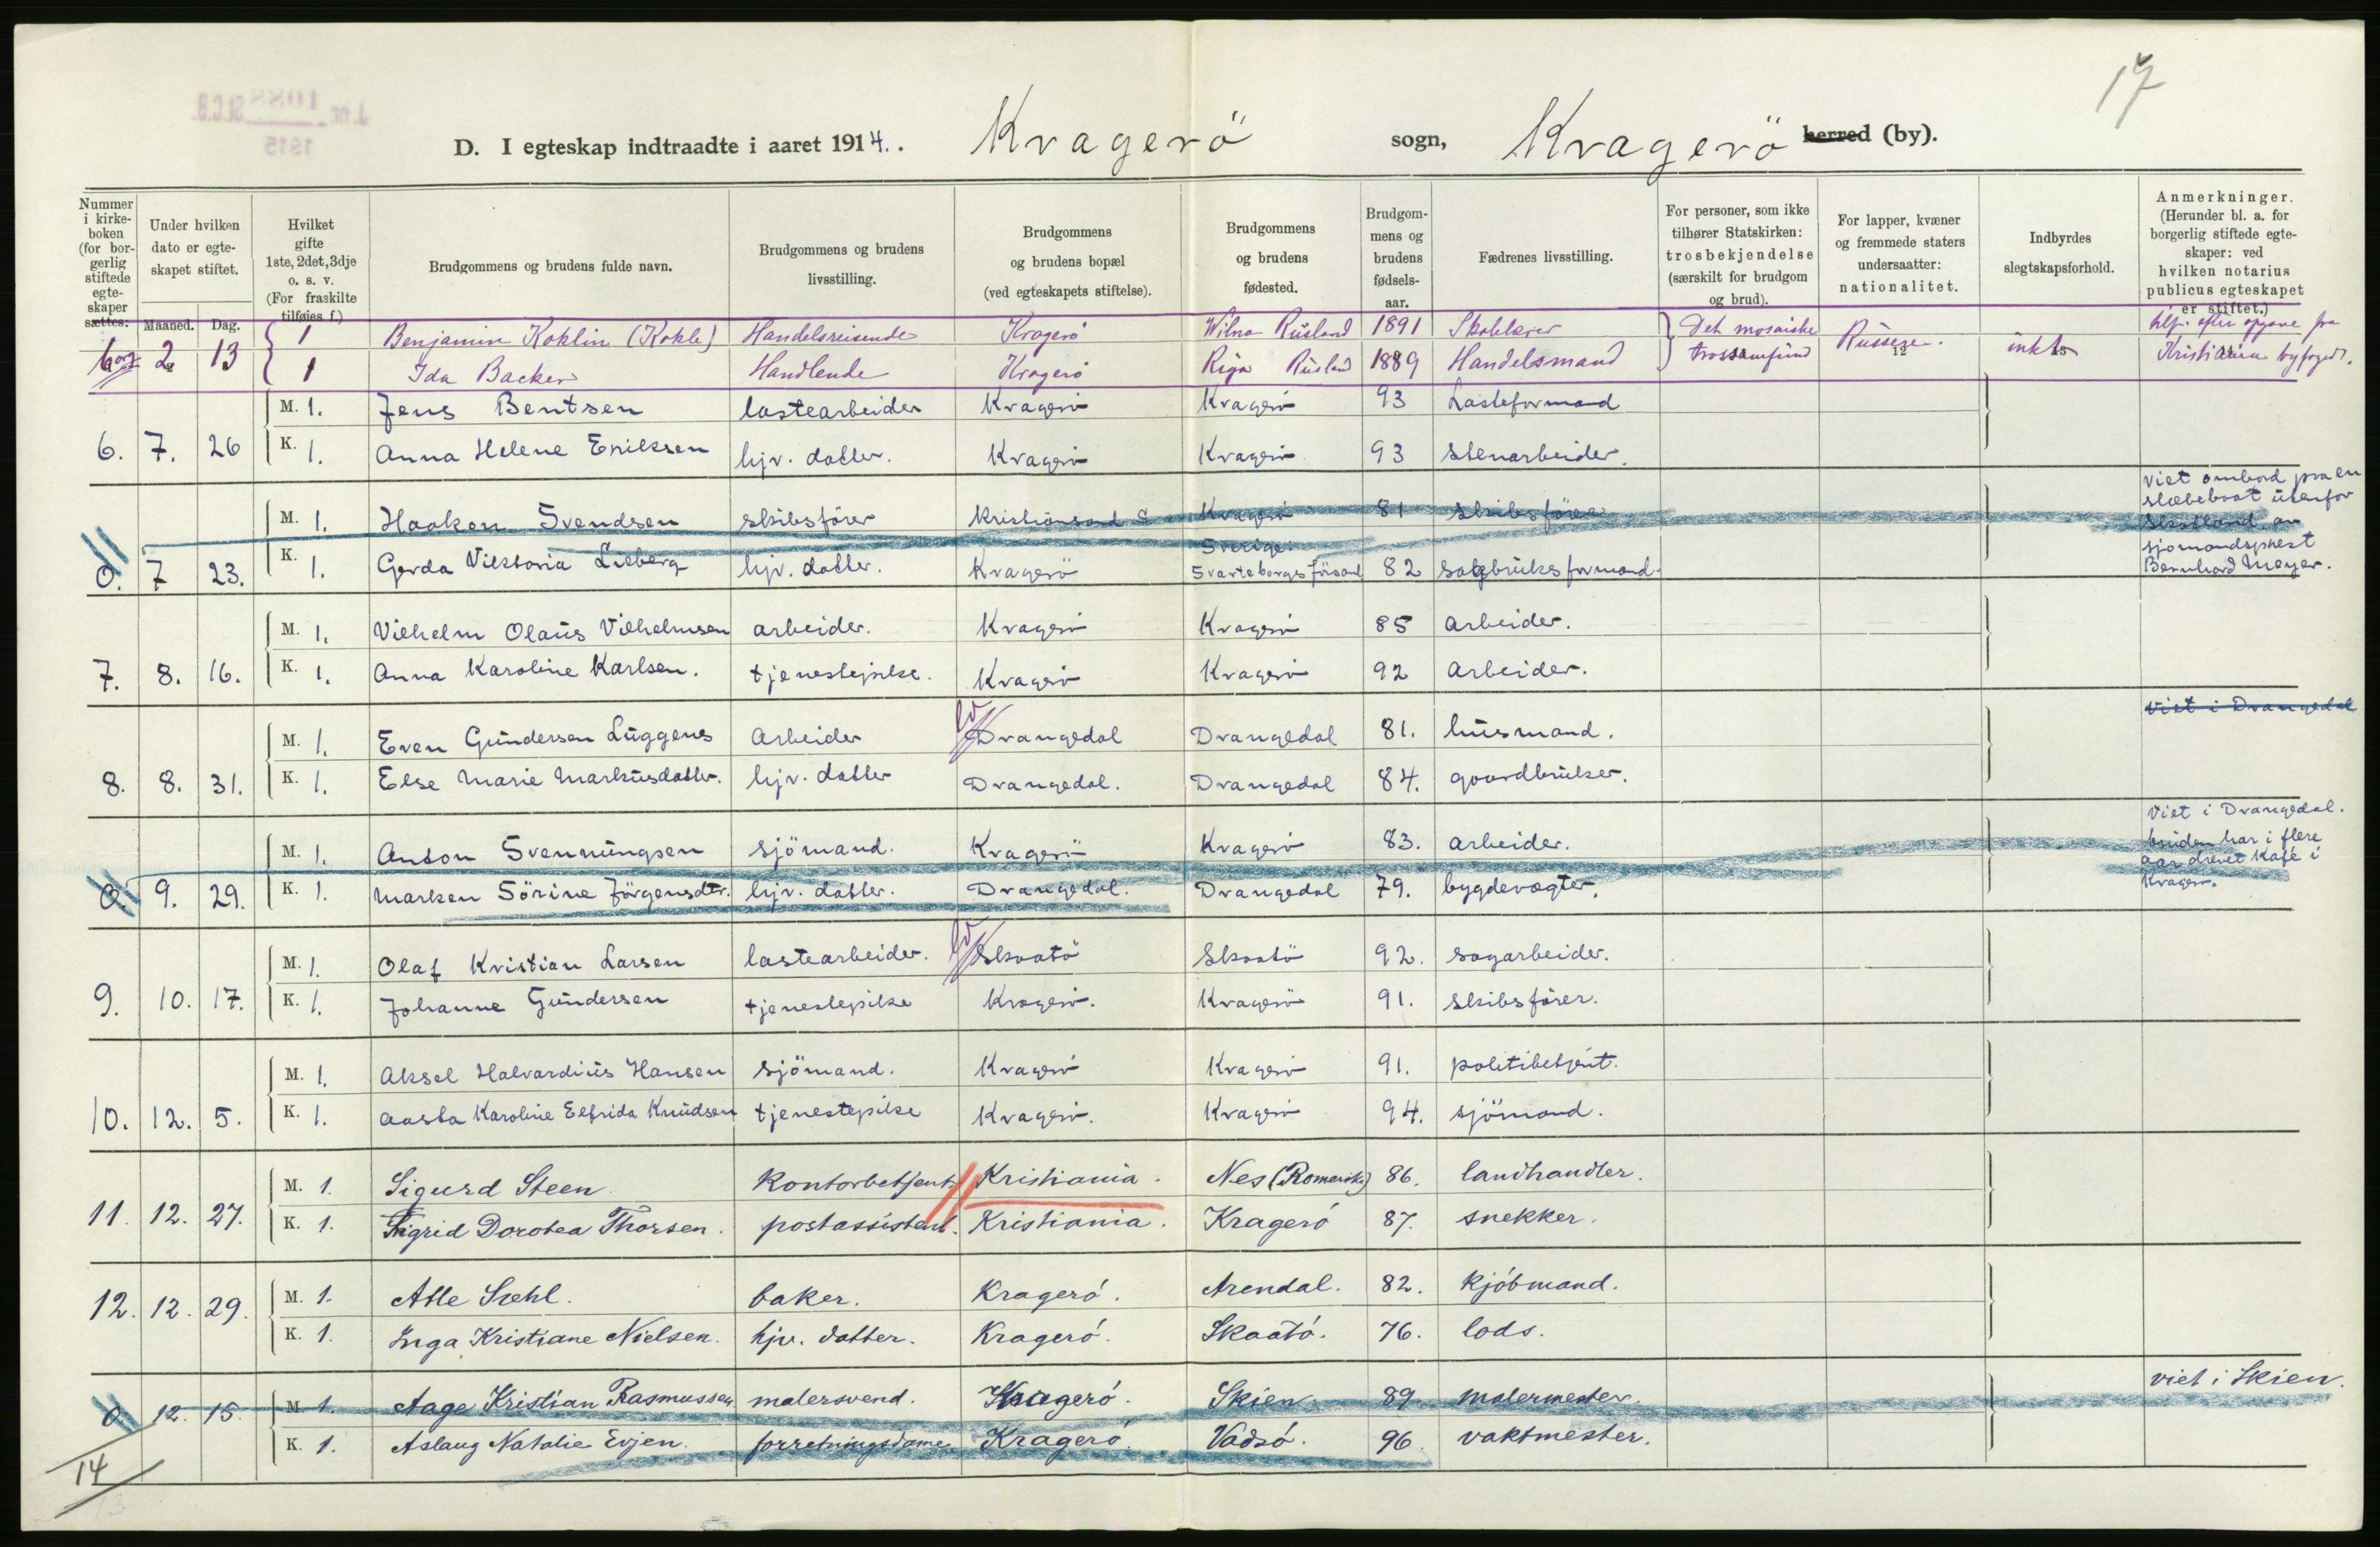 17
J.nr. 1088 St.C.B.
1915
D. I egteskap indtraadte i aaret 1914. Kragerö sogn, Kragerö herred (by).
Nummer i kirkeboken (for borgerlig stiftede egteskaper sættes:
Under hvilken dato er egteskapet stiftet.
Maaned. Dag.
Hvilket gifte 1ste, 2det, 3dje o. s. v. (For fraskilte tilføies f.)
Brudgommens og brudens fulde navn.
Brudgommens og brudens livsstilling.
Brudgommens og brudens bopæl (ved egteskapets stiftelse).
Brudgommens og brudens fødested.
Brudgommens og brudens fødselsaar.
Fædrenes livsstilling.
For personer, som ikke tilhører Statskirken: trosbekjendelse (særskilt for brudgom og brud).
For lapper, kvæner og fremmede staters undersaatter: nationalitet.
Indbyrdes slegtskapsforhold.
Anmerkninger. (Herunder bl. a. for borgerlig stiftede egteskaper: ved hvilken notarius publicus egteskapet er stiftet.)
1 Benjamin Koklin (Kokle) Handelsreisende Kragerö Wilna Rusland 1891 Skolelærer Det mosaiske efter opgave fra
borg 2 13 1 Ida Backer Handlende Kragerö Riga Rusland 1889 Handelsmand trossamfund Russere. 12 Kristiania byfoged.
M. 1. Jens Bentsen lastearbeider Kragerö Kragerö 93 Lasteformand
6. 7. 26 K. 1. Anna Helene Eriksen hjv. datter. Kragerö Kragerö 93 stenarbeider.
M. 1. Haakon Svendsen skibsförer Kristiansand S Kragerö 81 skibsförer
0. 7 23. K. 1. Gerda Viktoria hjv. datter. Kragerö Sverige. Svarteborgs 82 sagbruksformand.
Viet ombord paa en
slæbebaat utenfor
Skotland av
sjomandsprest
Bernhard Meyer.
M. 1. Vilhelm Olaus Vilhelmsen arbeider. Kragerö Kragerö 85 arbeider.
7. 8. 16. K. 1. Anna Karoline Karlsen. tjenestepike. Kragerö Kragerö 92 arbeider.
M. 1. Even Gundersen Luggens Arbeider Drangedal Drangedal 81. husmand. Viet i Drangedal
8. 8. 31. K. 1. Else Marie Markusdatter. hjv. datter Drangedal. Drangedal 84. gaardbruker.
M. 1. Anton Svenningsen sjömand. Kragerö Kragerö 83. arbeider.
0. 9. 29. K. 1. Marken Sörine Jörgensdtr. hjv. datter. Drangedal. Drangedal 79. bygdevægter.
Viet i Drangedal.
bruden har i flere
aar drevet kafé i
Kragerö.
M. 1. Olaf Kristian Larsen lastearbeider. Skaatö Skaatö 92. sagarbeider.
9. 10. 17. K. 1. Johanne Gundersen tjenestepike Kragerö. Kragerö 91. skibsförer.
M. 1. Aksel Halvardius Hansen sjömand. Kragerö Kragerö 91. politibetjent.
10. 12. 5. K. 1. Aasta Karoline Elfrida Knudsen tjenestepike Kragerö. Kragerö 94. sjömand.
M. 1. Sigurd Steen Kontorbetjent Kristiania. Nes (Romerike) 86. landhandler.
11. 12. 27. K. 1. Sigrid Dorotea Thorsen. postassistent. Kristiania. Kragerö 87. snekker.
M. 1. Atle baker. Kragerö. Arendal. 82. kjöbmand.
12. 12. 29. K. 1. Inga Kristiane Nielsen. hjv. datter. Kragerö. Skaatö. 76. lods.
0 12. 15. M. 1. Aage Kristian Rasmussen malersvend. Kragerö. Skien. 89. malermester. viet i Skien.
K. 1. Aslaug Natalie Evjen. forretningsdame Kragerö Vadsö. 96. vaktmester.
14
13